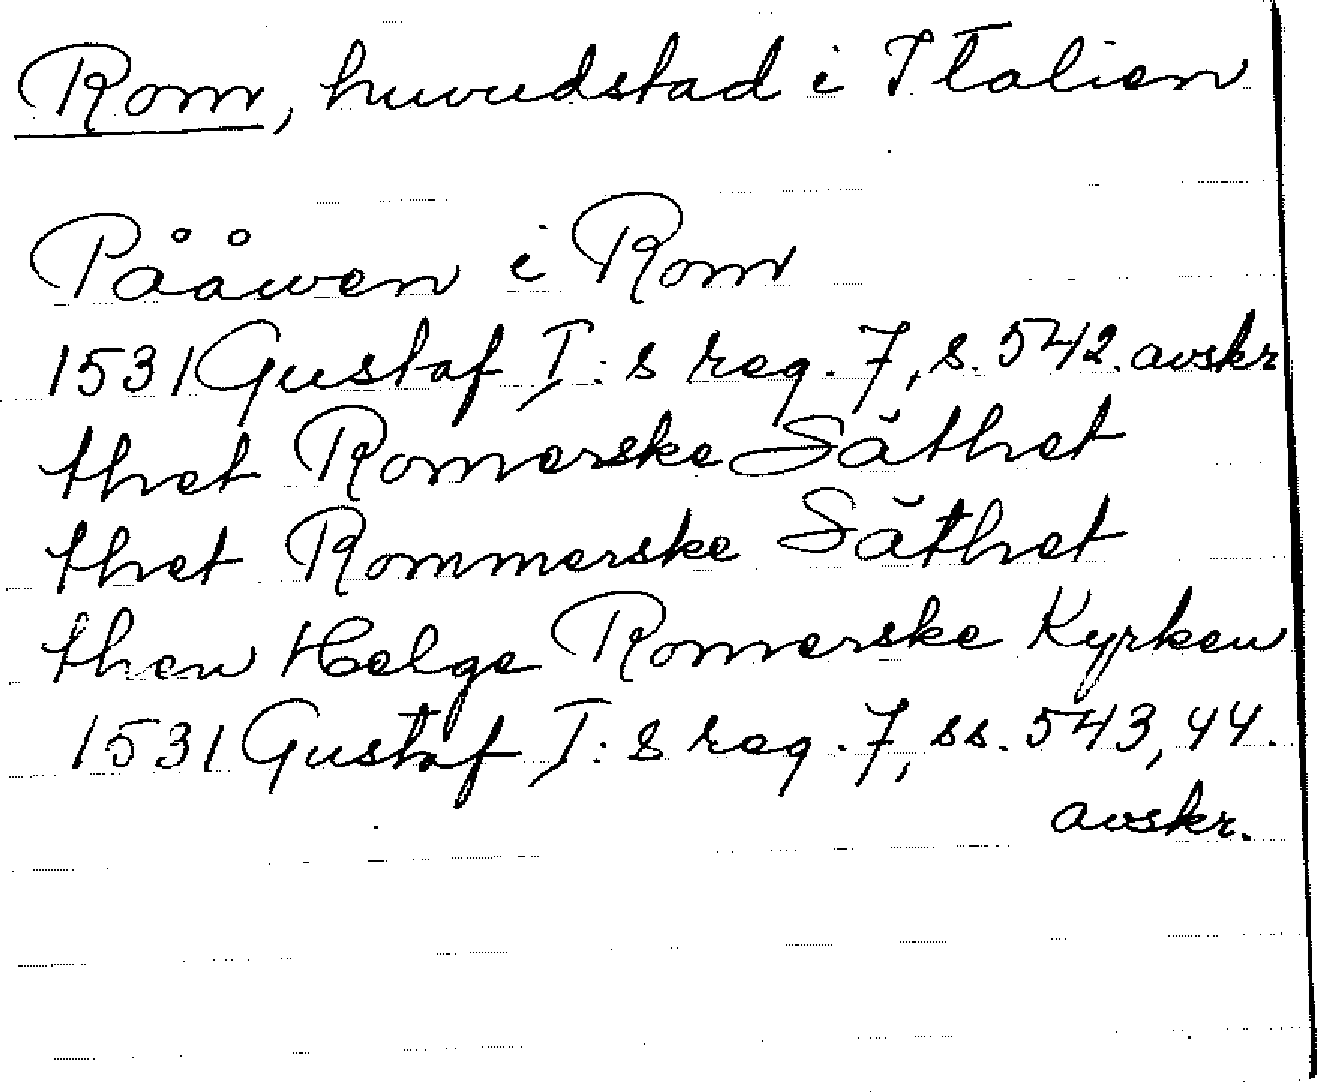 Rom, huvudstad i Italien
Pååwen i Rom
1531 Gustaf I:s reg. 7, s. 542. avskr
thet Romerske Săthet
thet Rommerske Săthet
then Helge Romerske Kyrken
1531 Gustaf I:s reg. 7, ss. 543, 44.
avskr.